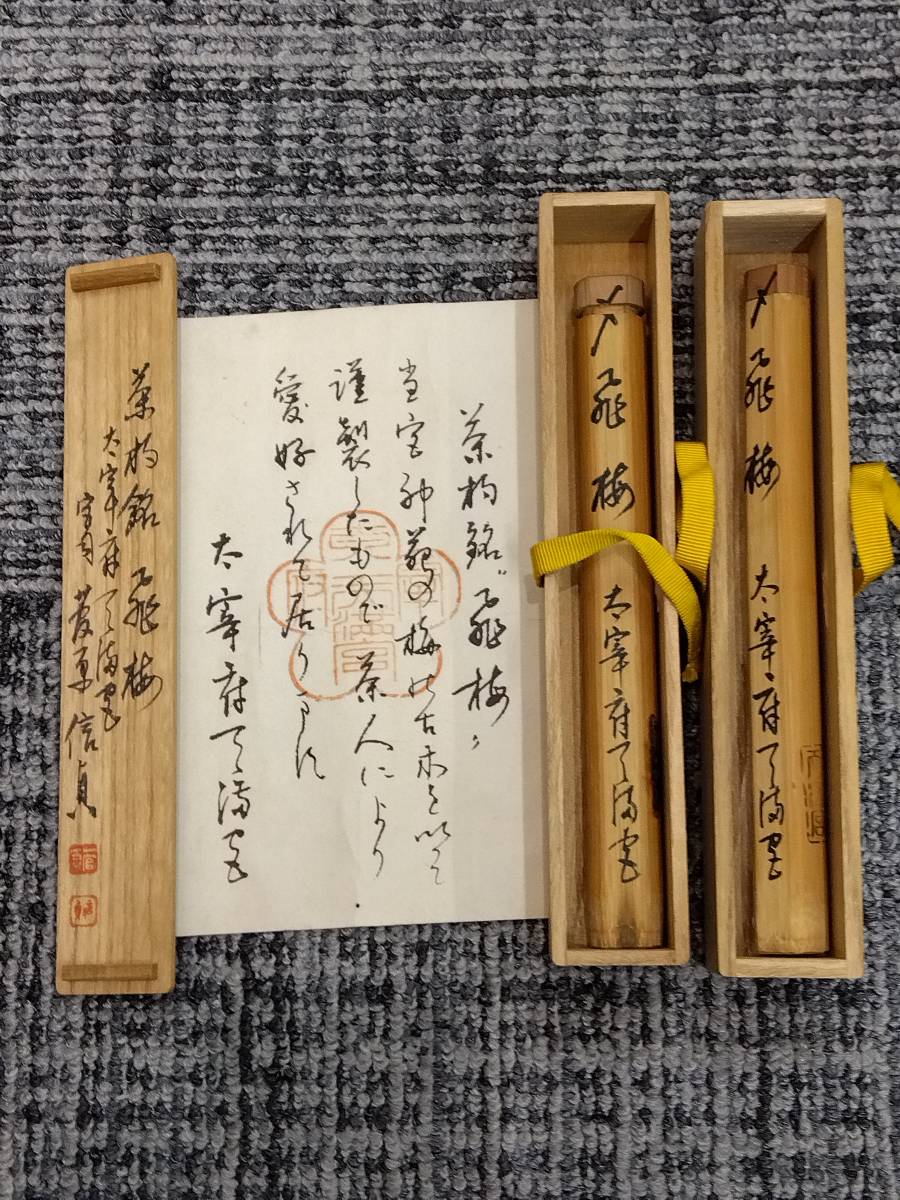 茶杓銘 飛梅
太宰府天満宮
宮司 菅原信貞
茶杓銘〝飛梅〟
当宮神苑の梅の古木を以て
謹製したもので茶人により
愛好されて居ります
太宰府天満宮
〆 飛梅 太宰府天満宮
〆 飛梅 太宰府天満宮